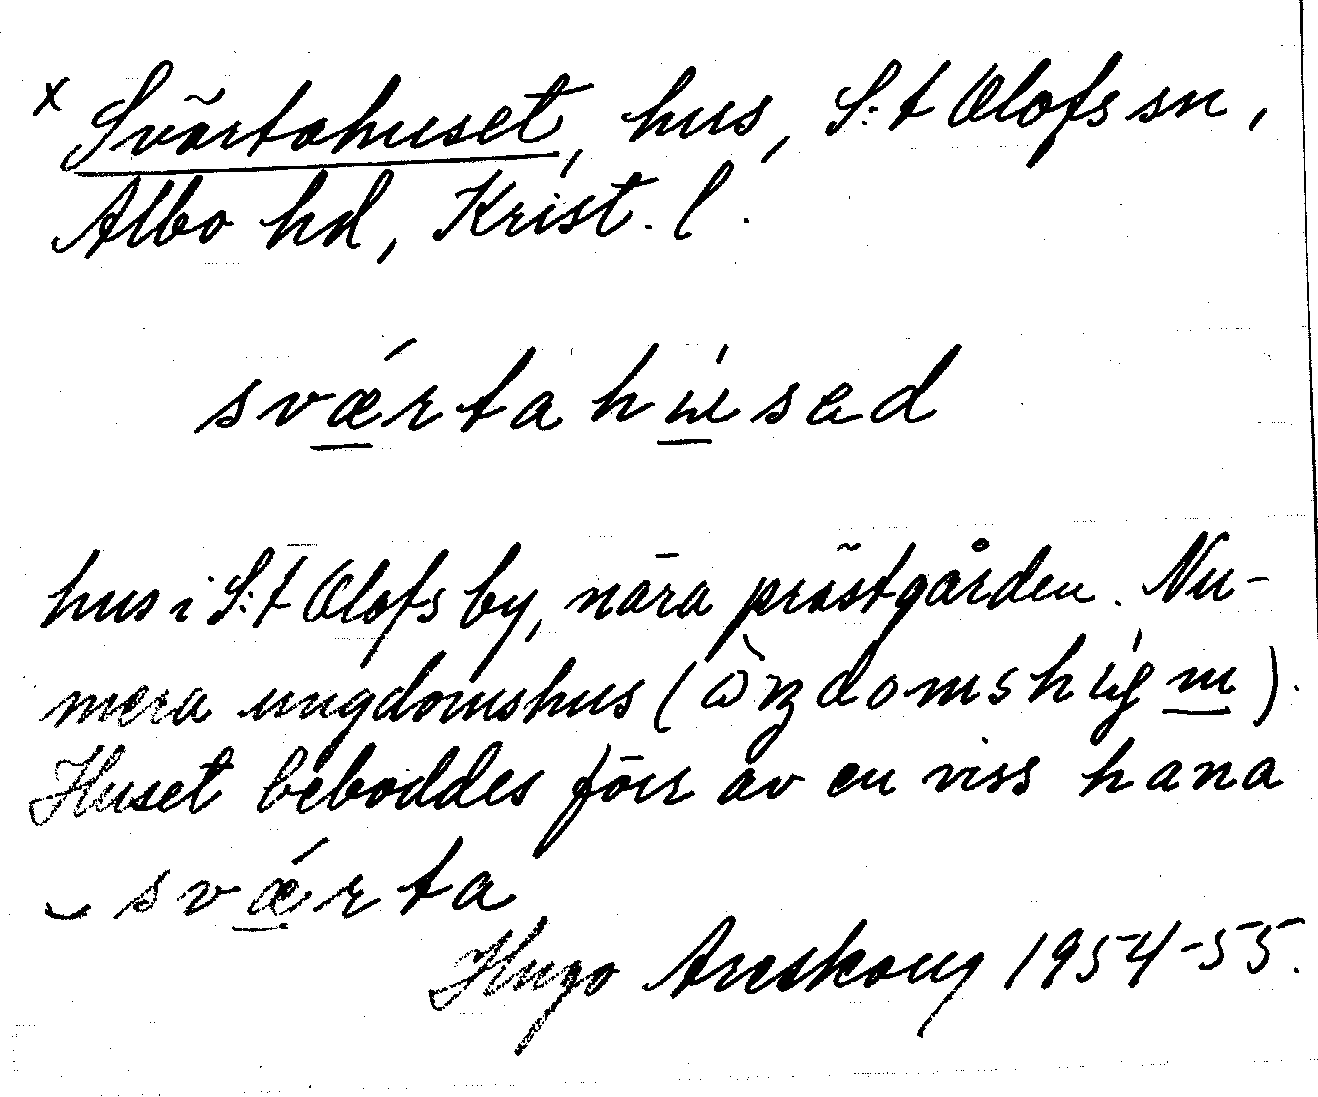 x Svärtahuset, hus, S:t Olofs sn,
Albo hd, Krist. l.
svǽrtahúsɐd
hus i S:t Olofs by, nära prästgården. Nu-
mera ungdomshus
Huset beboddes förr av en viss hana
svǽrta
Hugo Areskoug 1954-55.